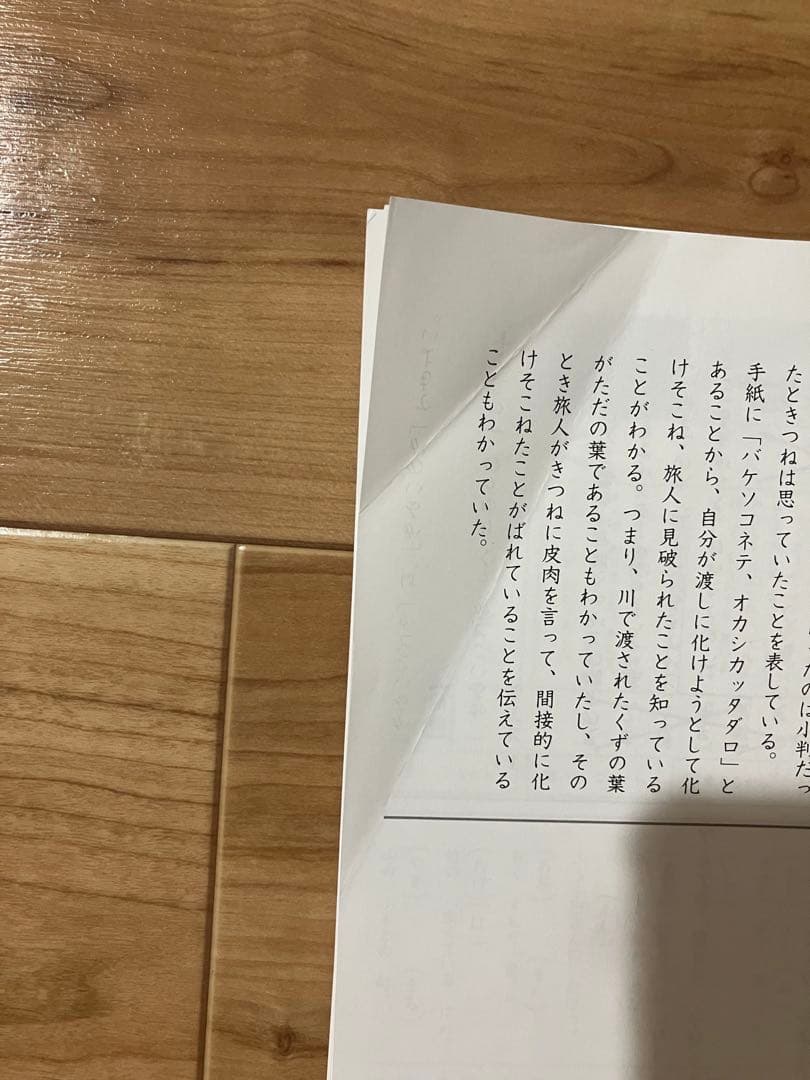 たのは小判だっ
たときつねは思っていたことを表している。
手紙に「バケソコネテ、オカシカッタダロ」と
あることから、自分が渡しに化けようとして化
けそこね、旅人に見破られたことを知っている
ことがわかる。つまり、川で渡されたくずの葉
がただの葉であることもわかっていたし、その
とき旅人がきつねに皮肉を言って、間接的に化
けそこねたことがばれていることを伝えている
こともわかっていた。